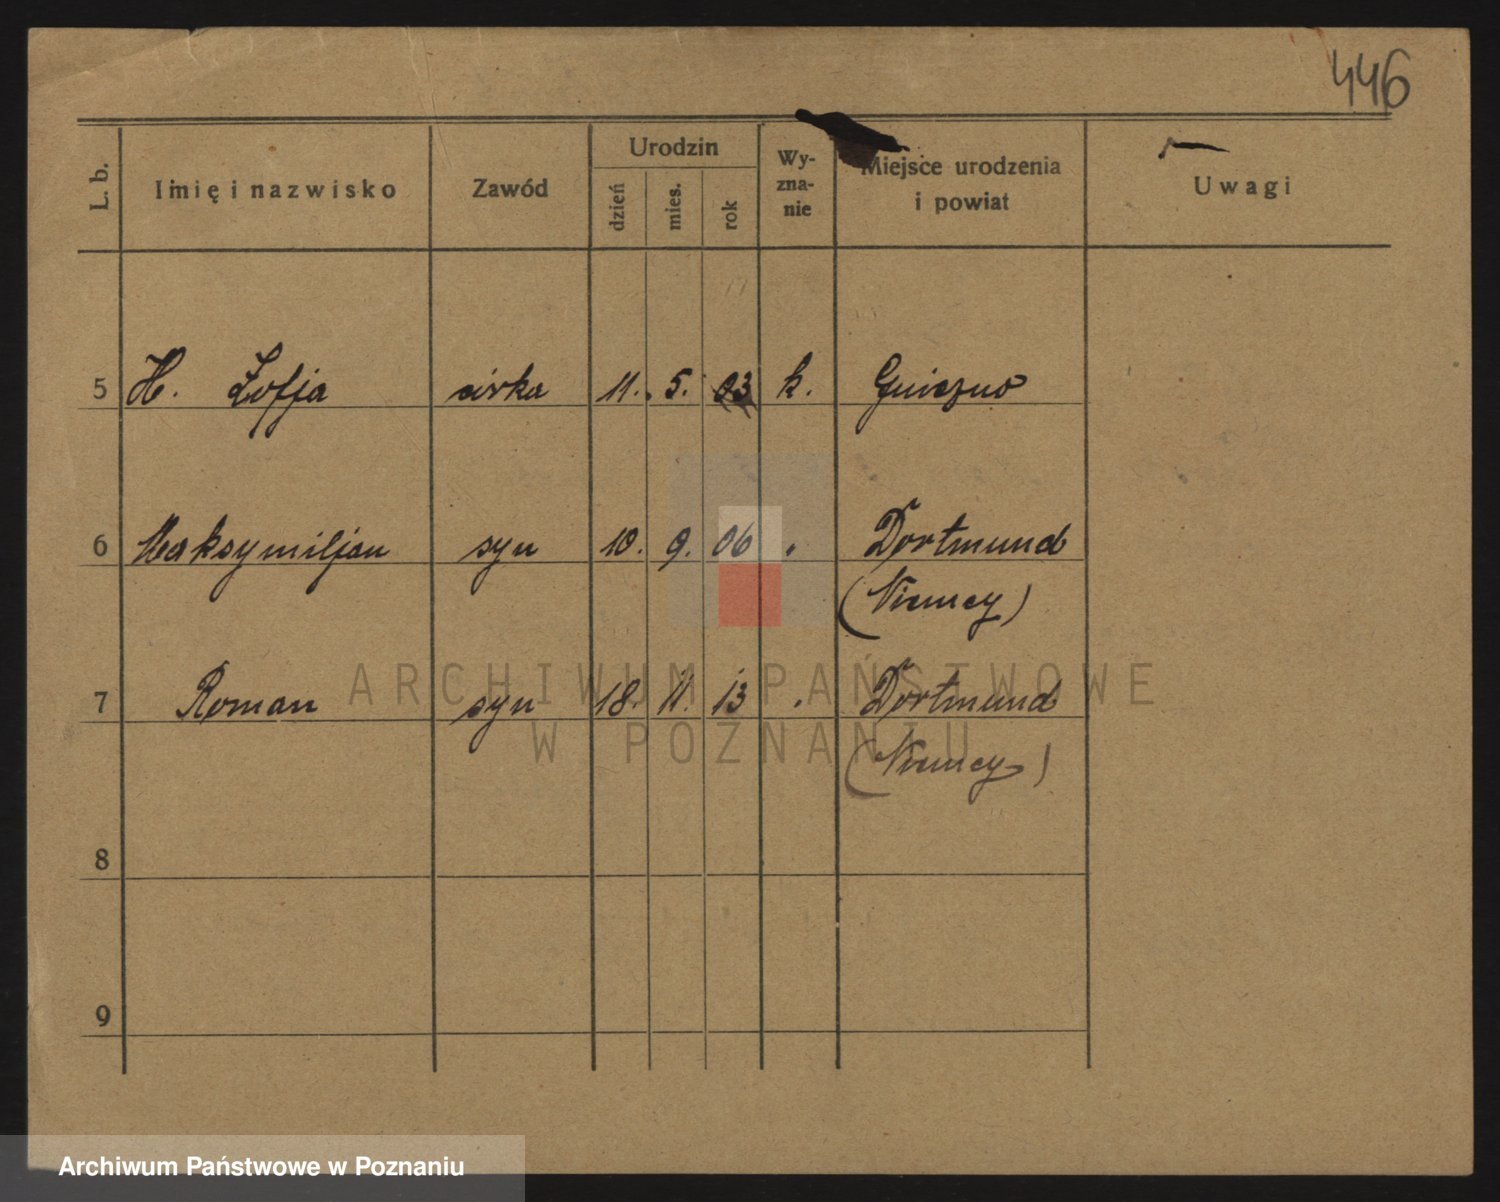 446
L. b.
Imię i nazwisko
Zawód
Urodzin
dzień
mies.
rok
Wy-
zna-
nie
Miejsce urodzenia
i powiat
Uwagi
5 H. Zofja córka 11. 5. 03 k. Gniezno
6 Maksymiljan syn 10. 9. 06 " Dortmund
(Niemcy)
7 Roman syn 18. 11. 13 " Dortmund
(Niemcy)
8
9
ARCHIWUM PAŃSTWOWE
W POZNANIU
Archiwum Państwowe w Poznaniu